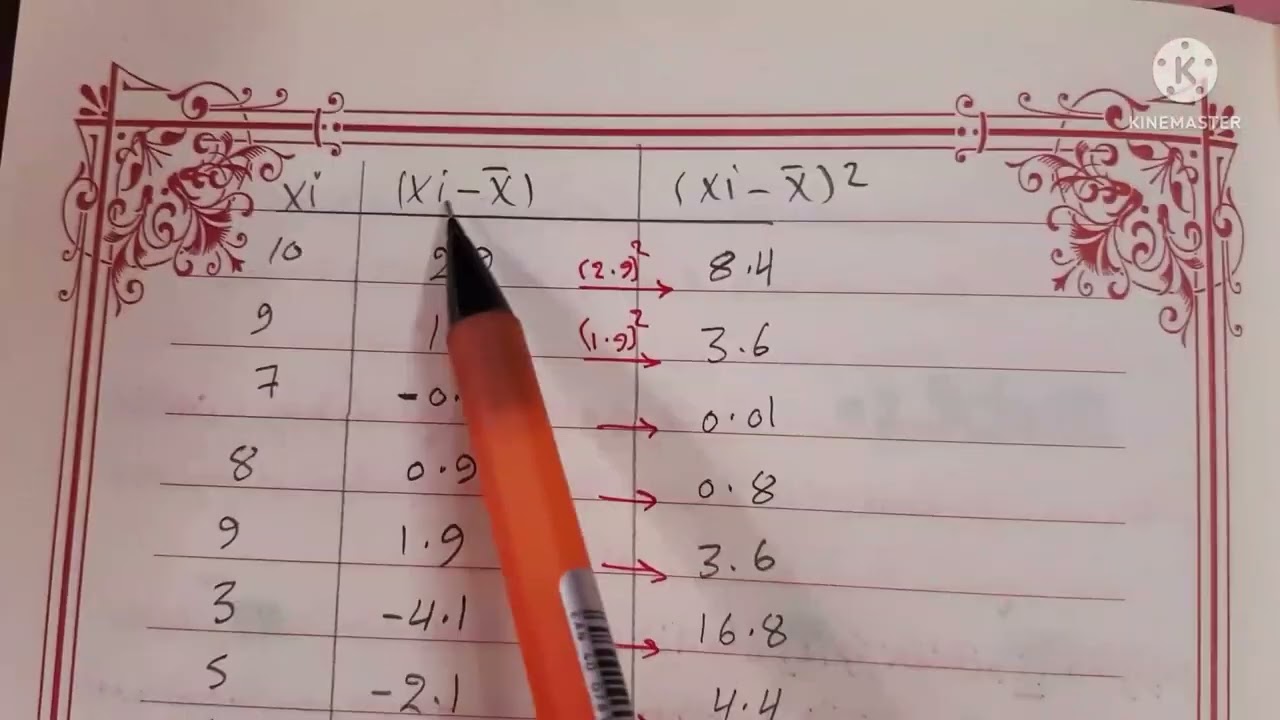 K
KINEMASTER
xi (xi-x̄) (xi-x̄)²
10 (2.9)² 8.4
9 (1.9)² 3.6
7 0.01
8 0.9 0.8
9 1.9 3.6
3 -4.1 16.8
5 -2.1 4.4